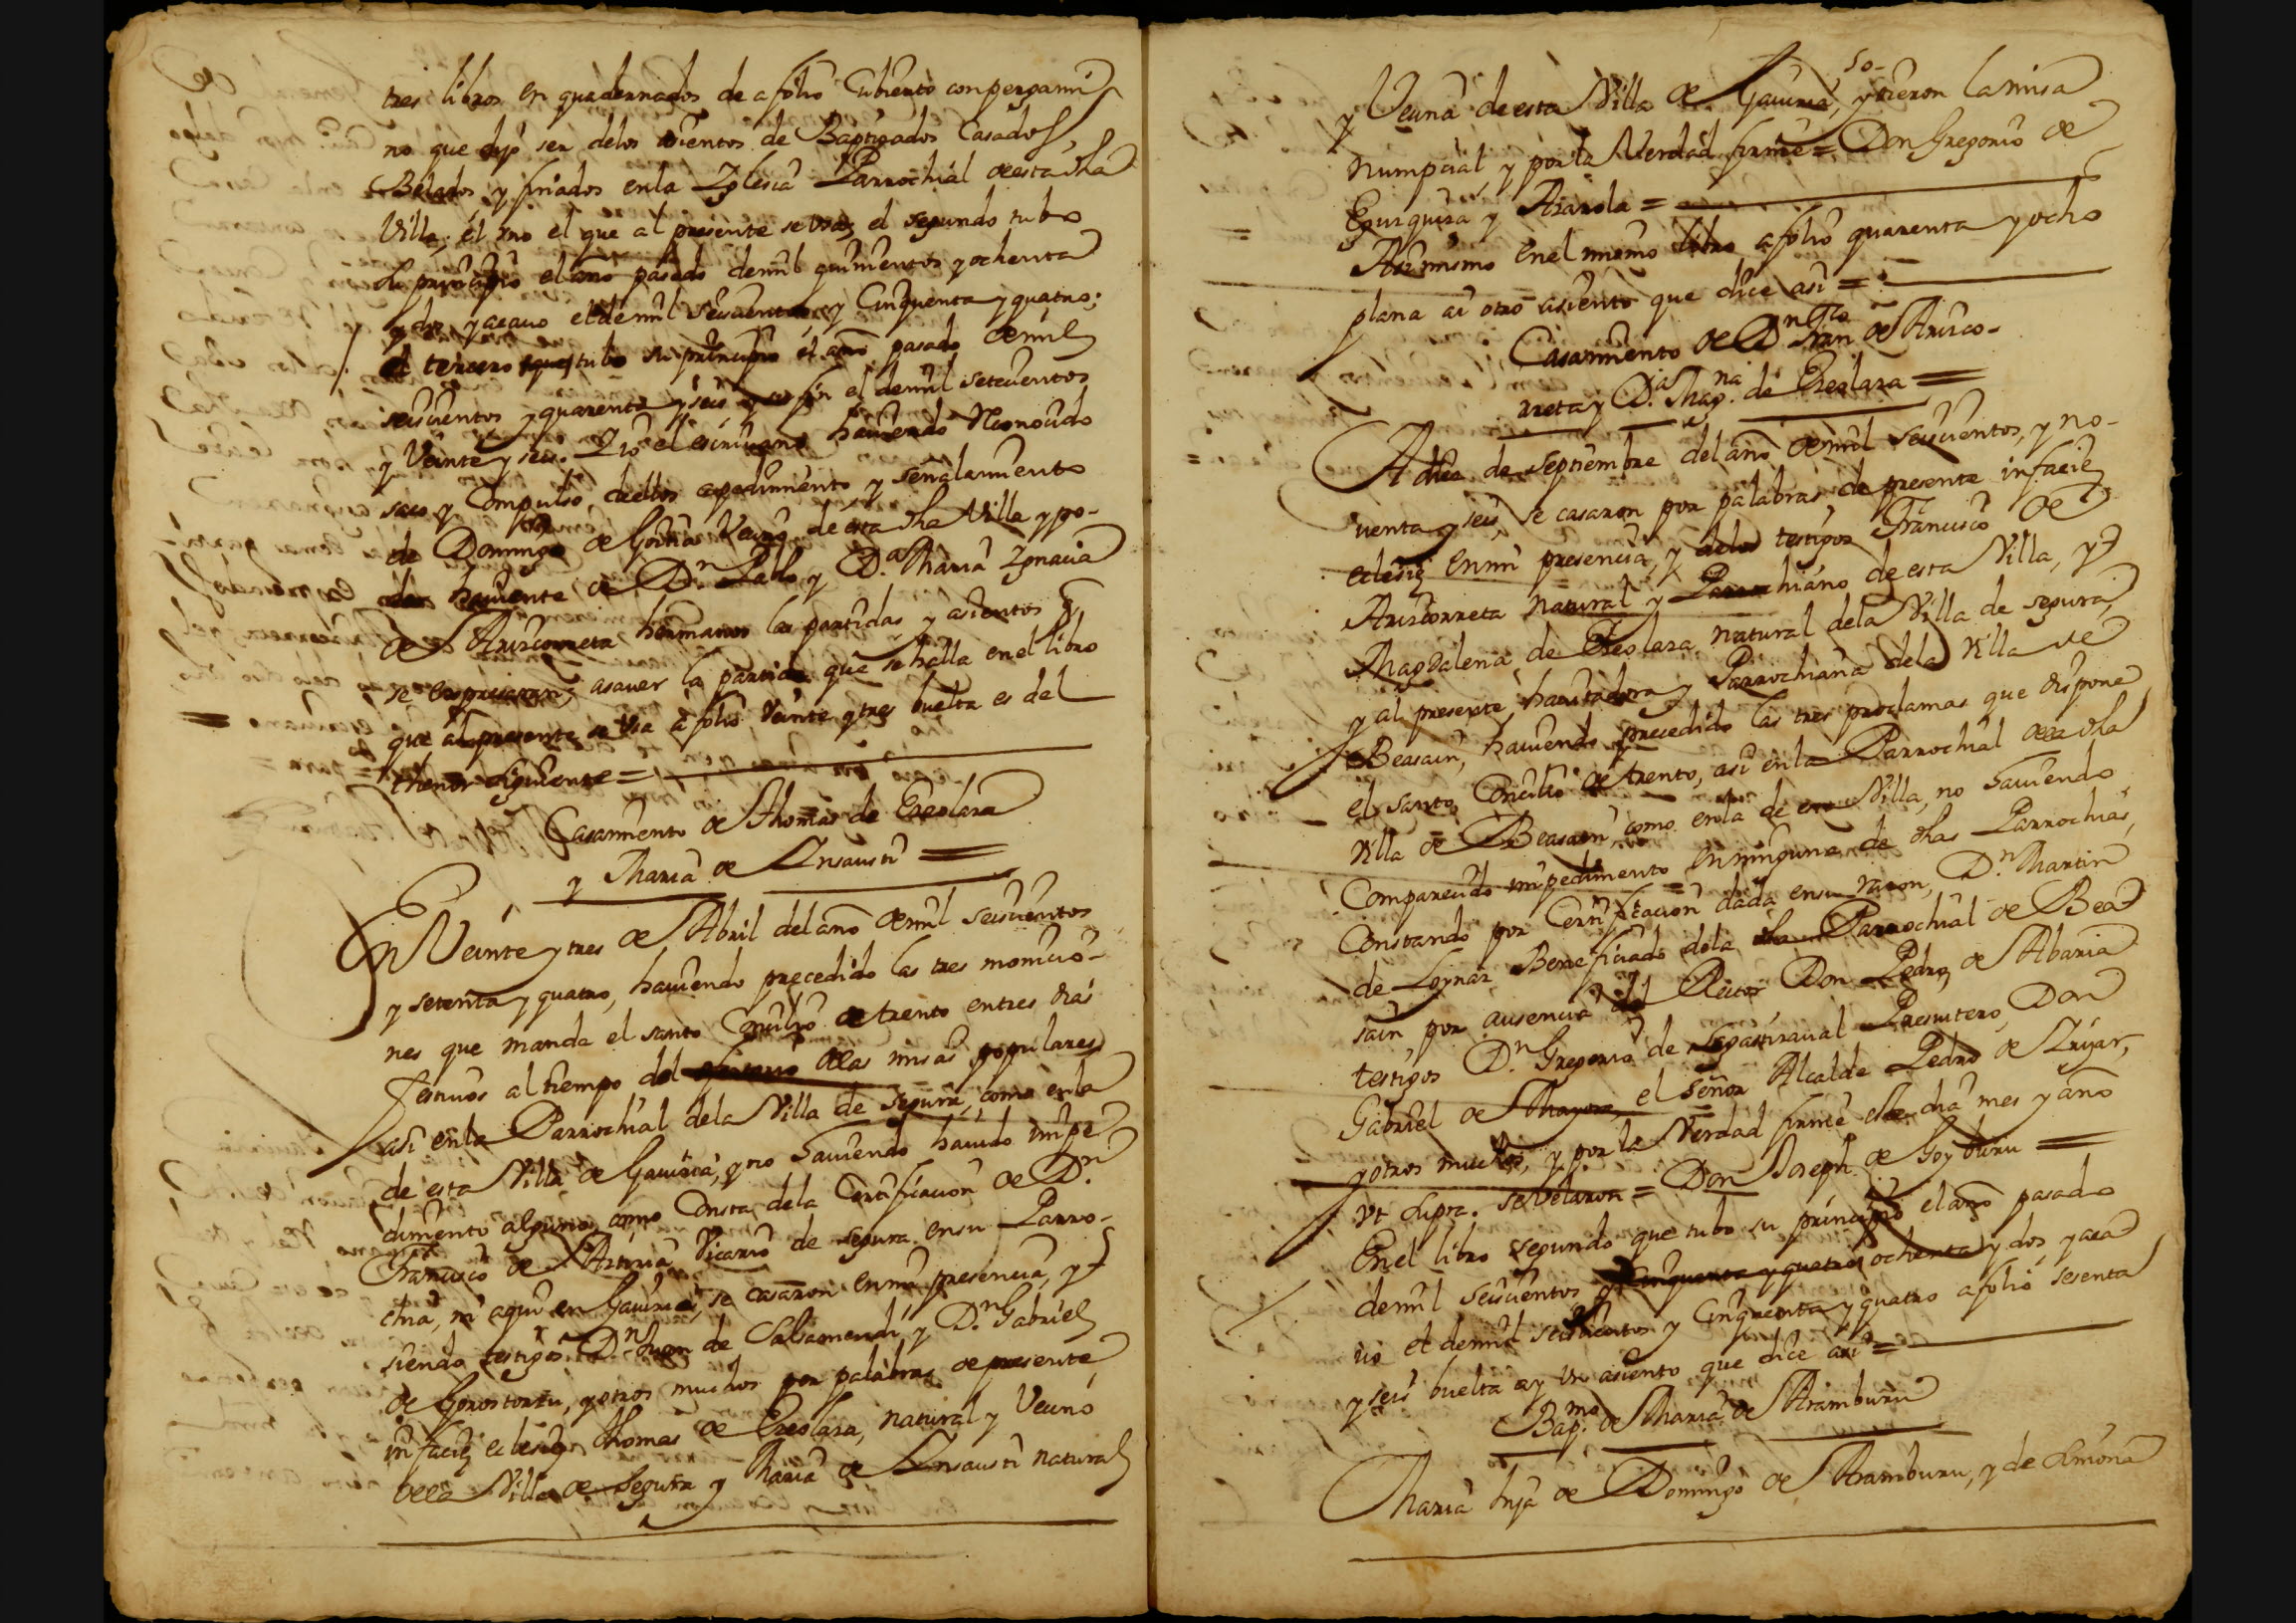 tres libros en quadernados de a folio cubierto con pergami
no que dijo ser delos asientos de Baptizados Casados,
Belados y finados enla Iglesia Parrochial de esta dha
Villa; él uno el que al presente se usa; el segundo tubo
su principio el año pasado demil quinientos y ochenta
y dos, y acavo el demil seiscientos y Cinquenta y quatro;
el tercero que tubo su principio el año pasado demil
seiscientos y quarenta y seis y su fin el demil setecientos
y Veinte y seis. Yo el escrivano haviendo Reconocido
saco y Compulso de ellos apedimiento y señalamiento
de Domingo de Goitia Vecino de esta dha Villa y po-
der haviente de Dn. Pablo y Da. Maria Ignacia
de Arizcorreta hermanos las partidas y asientos q
se expresaran; asaver la partida que se halla en el libro
que al presente se usa a folio Veinte y tres buelta es del
thenor siguiente =
Casamiento de Thomas de Ereolaza
y Maria de Insausti =
En Veinte y tres de Abril del año demil seiscientos
y setenta y quatro, haviendo precedido las tres monicio-
nes que manda el santo Concilio de trento entres dias
festivos al tiempo del ofertorio delas misas populares
asi enla Parrochial dela Villa de Segura, como enla
de esta Villa de Gaviria, y no Saviendo havido impe
dimento alguno, como Consta dela Certificacion de Dn.
Francisco de Arteria Vicario de Segura en su Parro-
chia, ni aqui en Gaviria, se casaron enmi presencia, y
siendo testigos Dn. Juan de Salsamendi, y Dn. Gabriel
de Gorostorzu, y otros muchos por palabras de presente,
in facie eclesie Thomas de Ereolaza, natural y Vecino
dela Villa de Segura y Maria de Insausti natural
y Vecina de esta Villa de Gaviria, y oieron la misa
so-
Numpcial, y por la Verdad firmé = Don Gregorio de
Eguzquiza y Arazola =
Asimismo enel mismo libro a folio quarenta y ocho
plana ai otro asiento que dice asi =
Casamiento de Dn Fran.co de Arizco-
rreta y Da. Mag.na de Ereolaza =
A diez de septiembre del año demil seiscientos, y no-
venta y seis, se casaron por palabras, de presente in facie
eclesie en mi presencia, y delos testigos Francisco de
Arizcorreta natural y Parrochiano de esta Villa, y
Magdalena de Ereolaza natural dela Villa de segura,
y al presente havitadora y Parrochiana dela Villa de
Beasain, haviendo precedido las tres proclamas que dispone
el santo Concilio de trento, asi en la Parrochial dela dha
Villa de Beasain, como enla de esta Villa, no Saviendo
Comparecido impedimento en ninguna de dhas Parrochias,
Constando por Certificacion dada en su razon, Dn. Martin
de Loinaz Beneficiado dela dha Parrochial de Bea
sain por ausencia del Rector Don Pedro de Abaria
testigos Dn. Gregorio de Apaztiraval Presvitero, Don
Gabriel de Mayora, el señor Alcalde Pedro de Aryar,
y otros muchos, y por la Verdad firmé este dia mes y año
Vt supra. se Velaron = Don Joseph de Goyburu =
Enel libro segundo que tubo su principio el año pasado
demil seiscientos y Cinquenta y quatro ochenta y dos, y aca
vó el demil seiscientos y Cinquenta y quatro a folio sesenta
y seis buelta ay un asiento que dice asi =
Bap.mo de Maria de Aramburu
Maria hija de Domingo de Aramburu, y de Simona